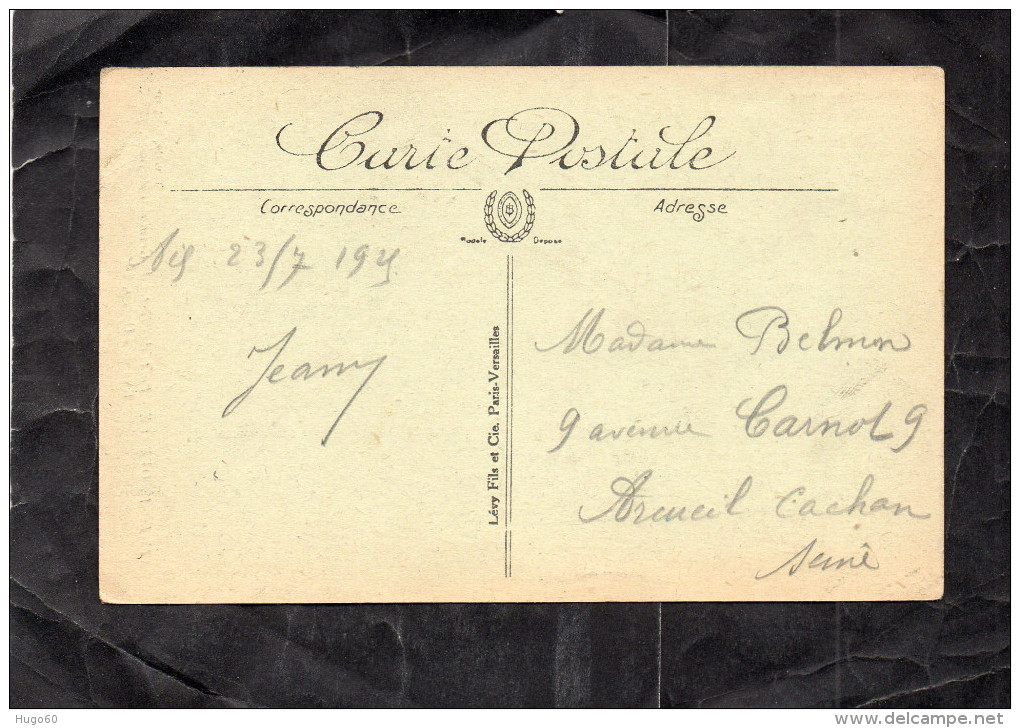 Carte Postale
Correspondance
Adresse
Modèle Déposé
23/7 1925
Jeanny
Lévy Fils et Cie. Paris-Versailles
Madame Belmon
9 avenue Carnot 9
Arcueil Cachan
Seine
Hugo60
www.delcampe.net